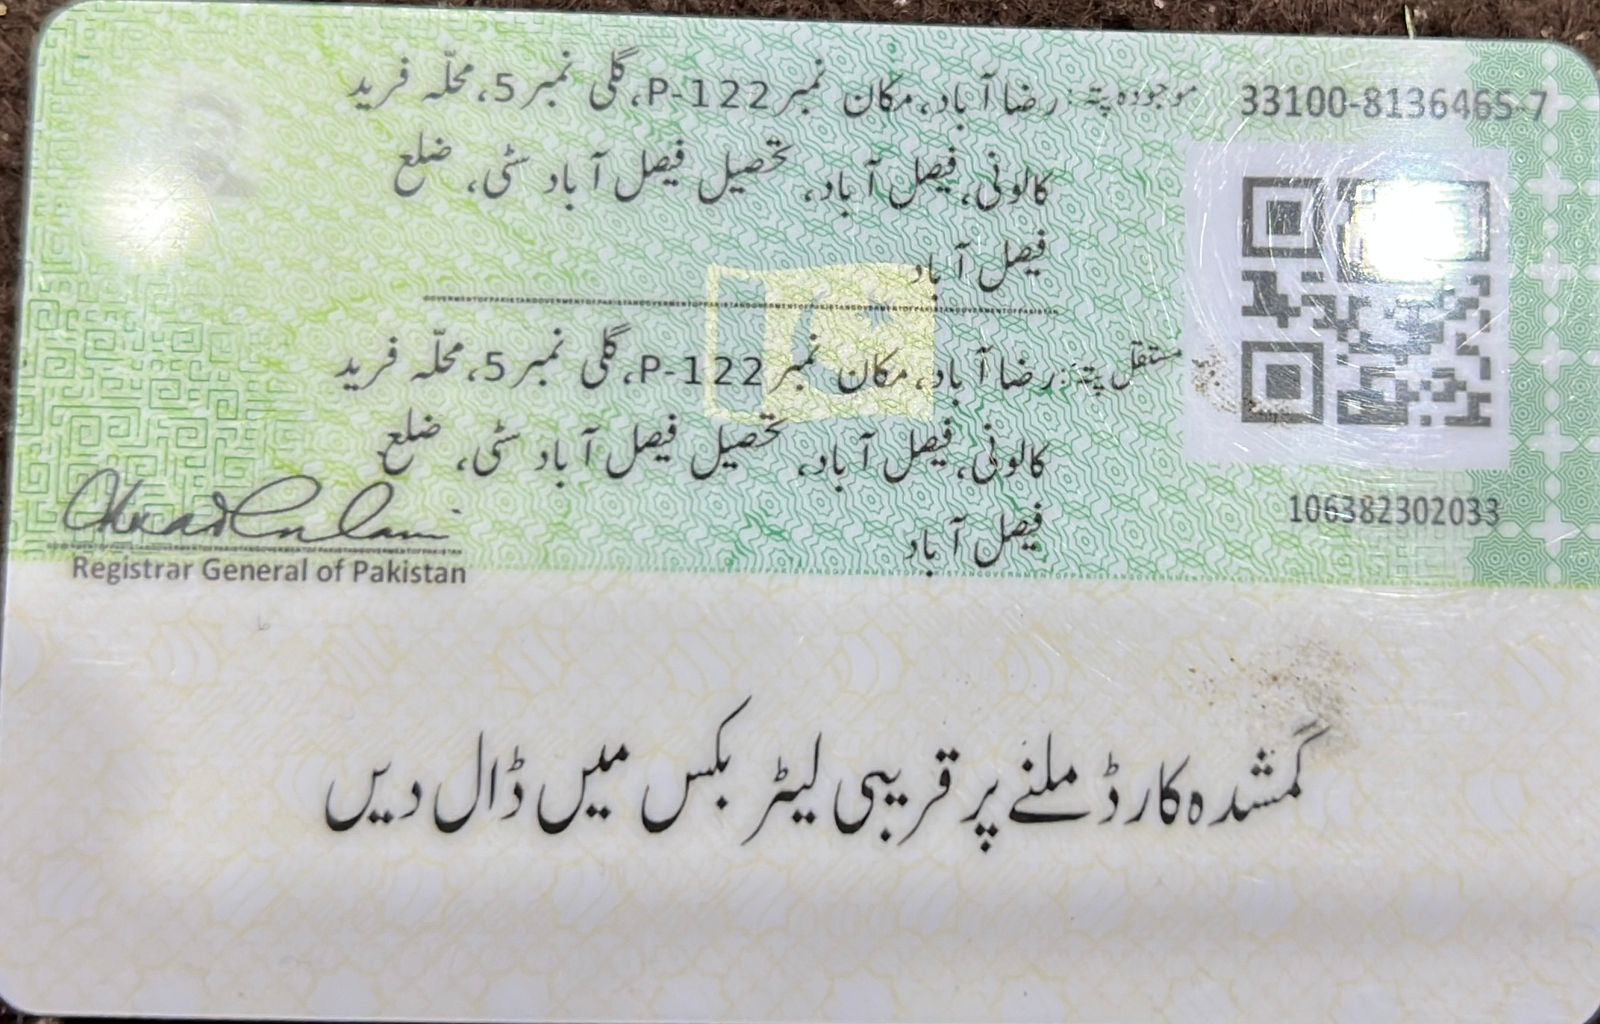 33100-8136465-7
موجودہ پتہ: رضا آباد، مکان نمبر P-122، گلی نمبر 5، محلّہ فرید
کالونی، فیصل آباد، تحصیل فیصل آباد سٹی، ضلع
فیصل آباد
مستقل پتہ: رضا آباد، مکان نمبر P-122، گلی نمبر 5، محلّہ فرید
کالونی، فیصل آباد، تحصیل فیصل آباد سٹی، ضلع
فیصل آباد
106382302033
Registrar General of Pakistan
گمشدہ کارڈ ملنے پر قریبی لیٹر بکس میں ڈال دیں